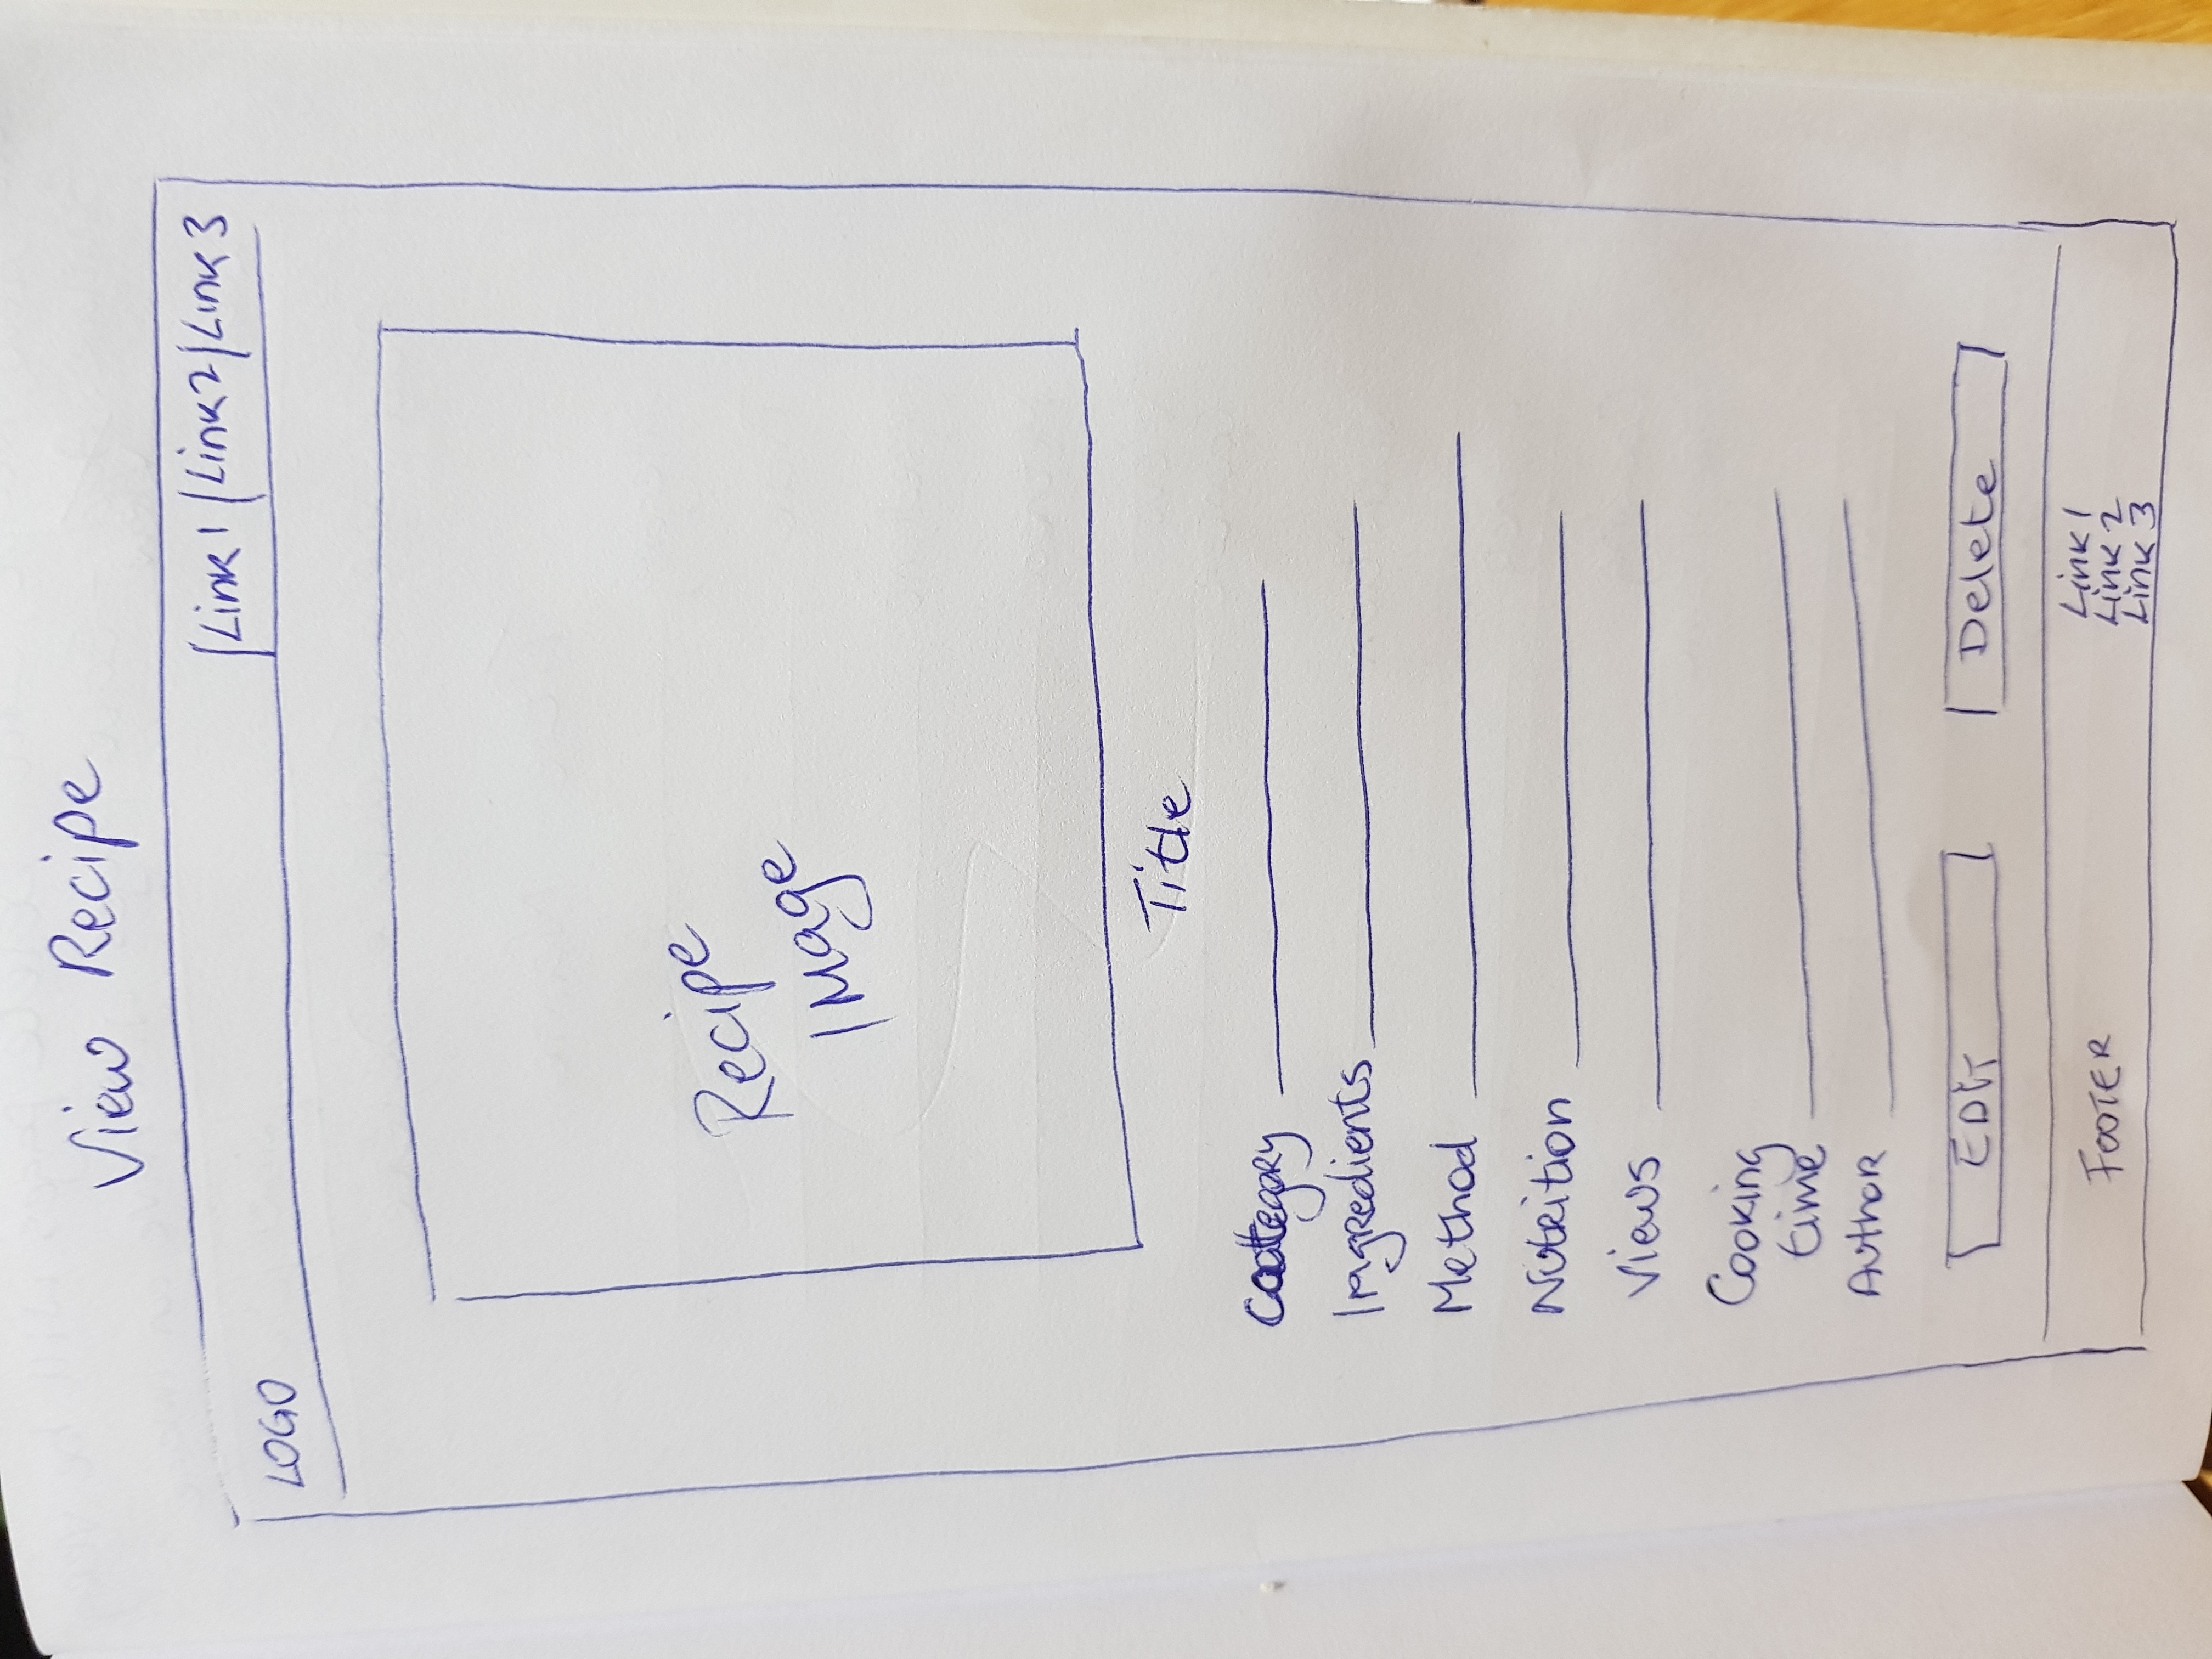 View Recipe
LOGO
Link 1 Link 2 Link 3
Recipe
Image
Title
Category
Ingredients
Method
Nutrition
Views
Cooking
time
Author
EDIT Delete
FOOTER
Link 1
Link 2
Link 3